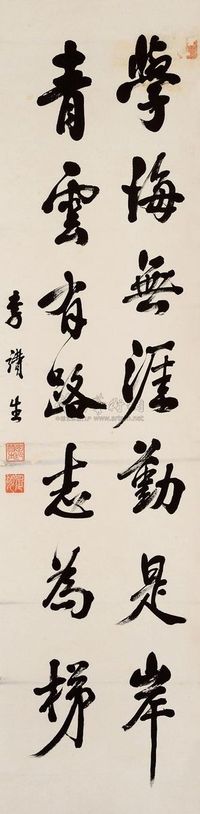 學海無涯勤是岸
青雲有路志為梯
李讚生